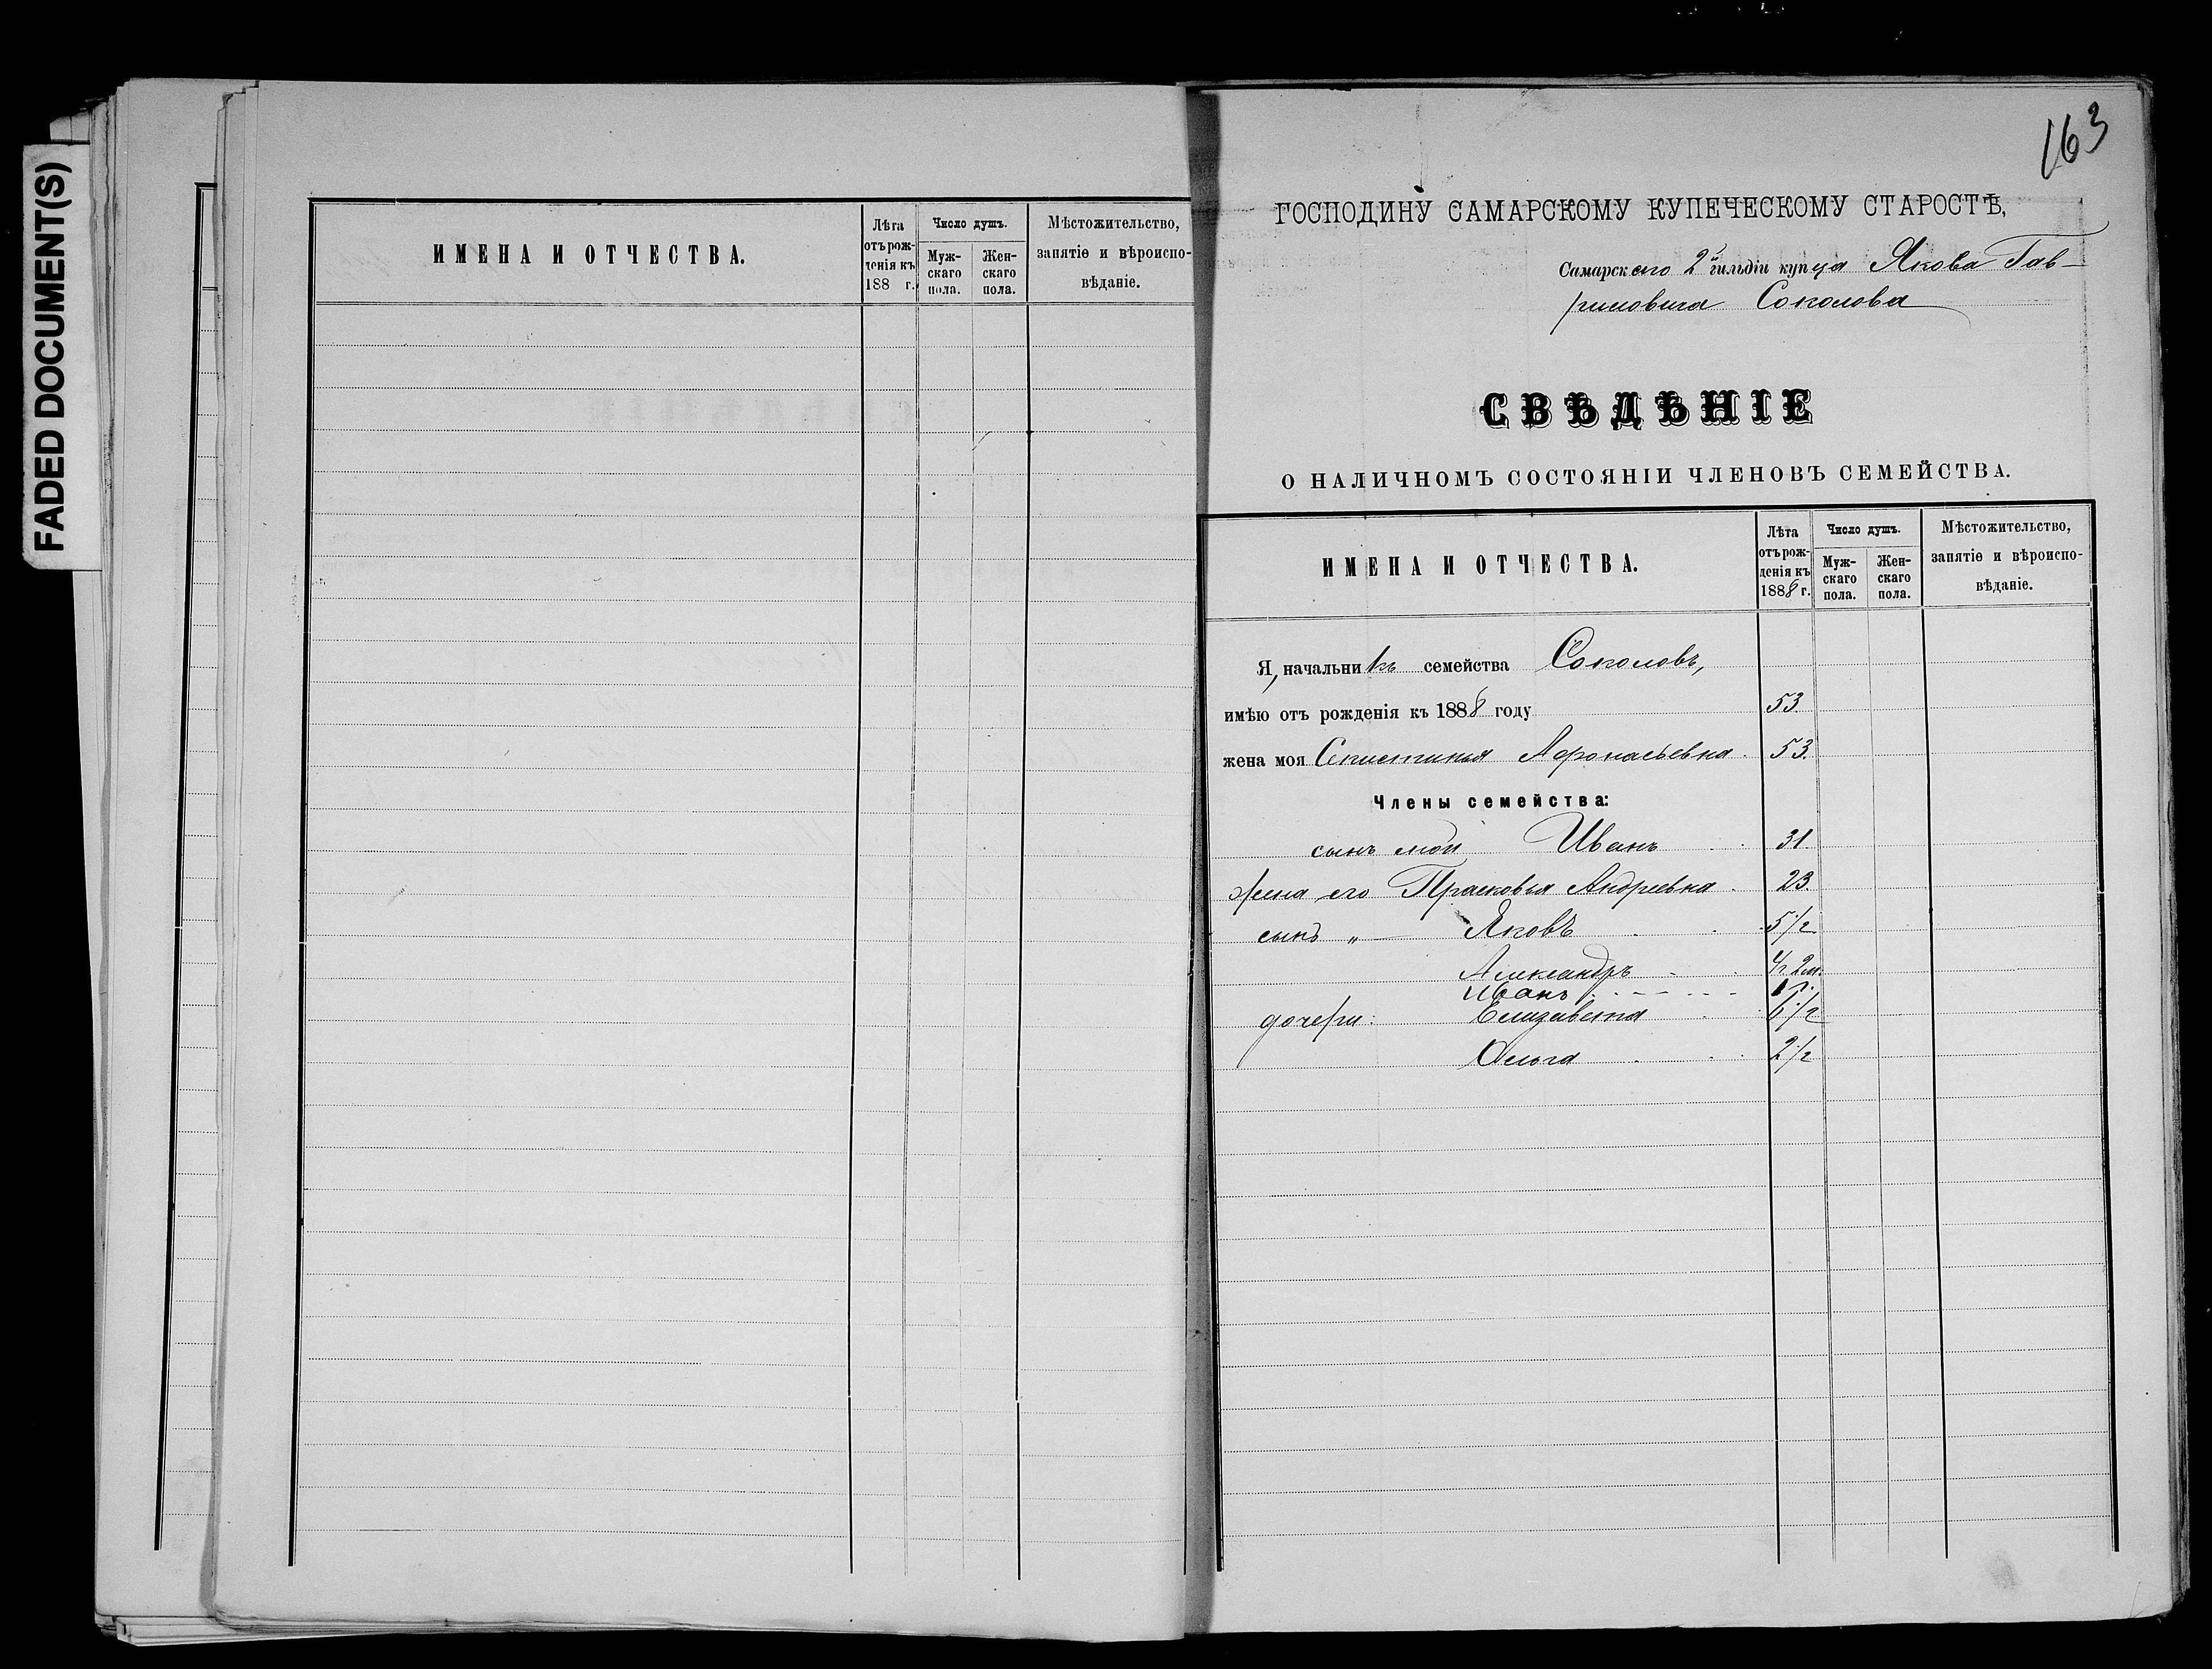 FADED DOCUMENT(S)
ИМЕНА И ОТЧЕСТВА.
Лѣта отъ рожденія къ 188 г.
Число душъ.
Мужскаго пола.
Женскаго пола.
Мѣстожительство, занятіе и вѣроисповѣданіе.
163
ГОСПОДИНУ САМАРСКОМУ КУПЕЧЕСКОМУ СТАРОСТѢ,
Самарскаго 2й гильдіи купца Якова Гав-
риловича Соколова
СВѢДѢНІЕ
О НАЛИЧНОМЪ СОСТОЯНІИ ЧЛЕНОВЪ СЕМЕЙСТВА.
ИМЕНА И ОТЧЕСТВА.
Лѣта отъ рожденія къ 1888 г.
Число душъ.
Мужскаго пола.
Женскаго пола.
Мѣстожительство, занятіе и вѣроисповѣданіе.
Я, начальникъ семейства Соколовъ,
имѣю отъ рожденія къ 1888 году 53
жена моя Афонасьевна 53.
Члены семейства:
сынъ мой Иванъ 31
жена его Прасковья Андреевна 23.
сынъ „ — Яковъ 5 1/2
Александръ
Иванъ
дочери: Елизавета 6 1/2
Ольга 2 1/2